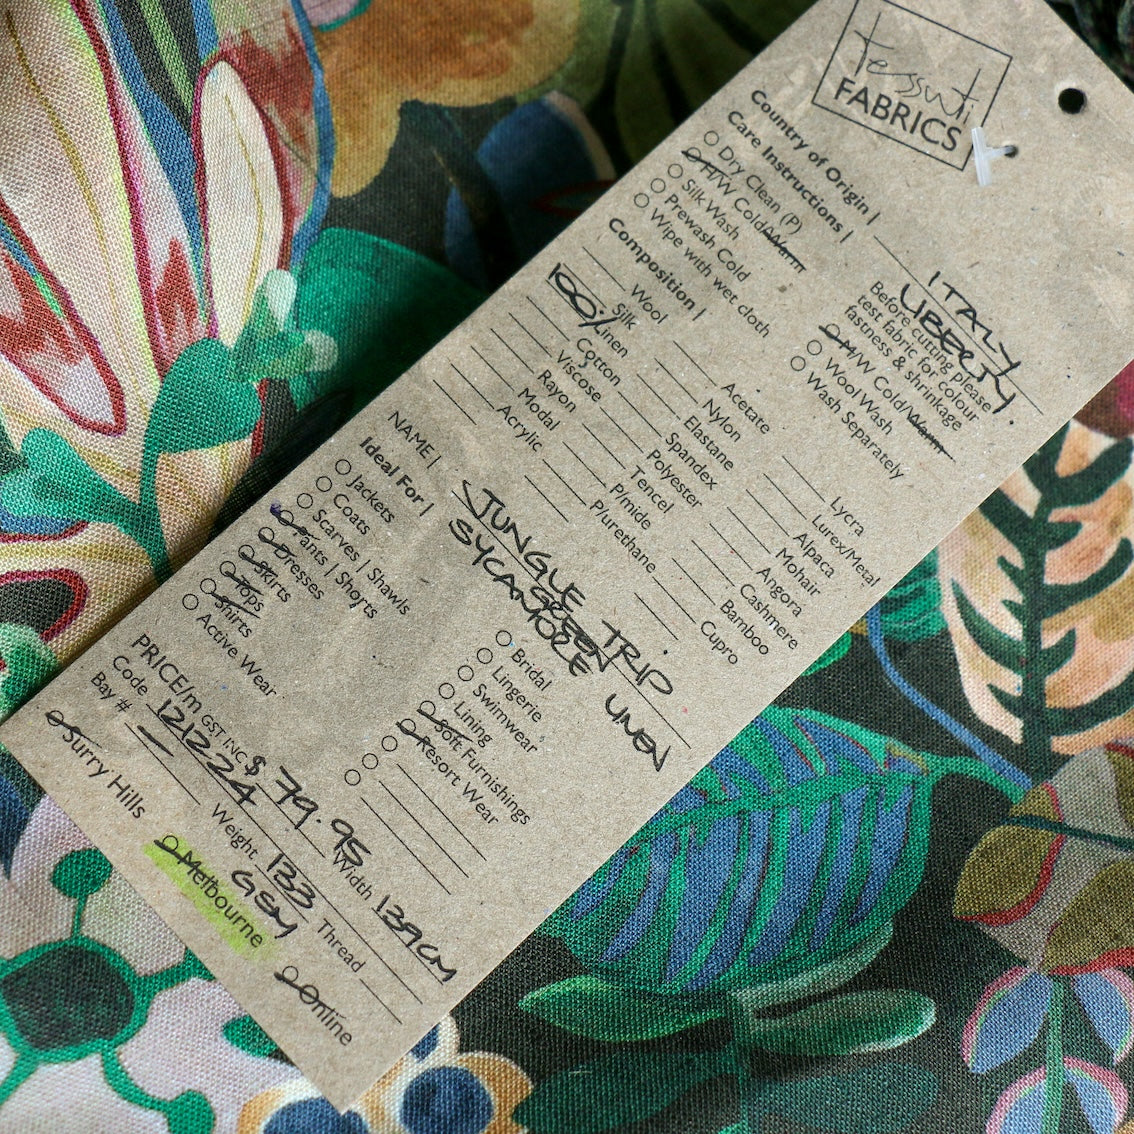 Tessuti
FABRICS
Country of Origin | ITALY
LIBERTY
Care Instructions |
Dry Clean (P)
H/W Cold/Warm
Silk Wash
Prewash Cold
Wipe with wet cloth
Before cutting please
test fabric for colour
fastness & shrinkage
H/W Cold/Warm
Wool Wash
Wash Separately
Composition |
Wool
Silk
100% Linen
Cotton
Viscose
Rayon
Modal
Acrylic
Acetate
Nylon
Elastane
Spandex
Polyester
Tencel
P/mide
P/urethane
Lycra
Lurex/Metal
Alpaca
Mohair
Angora
Cashmere
Bamboo
Cupro
NAME | JUNGLE TRIP
SYCAMORE LINEN
GREEN
Ideal For |
Jackets
Coats
Scarves | Shawls
Pants | Shorts
Dresses
Skirts
Tops
Shirts
Active Wear
Bridal
Lingerie
Swimwear
Lining
Soft Furnishings
Resort Wear
PRICE/m GST INC $79.95
Code 121224
Width 139CM
Bay # —
Weight 133 GSM
Thread
Surry Hills
Melbourne
Online